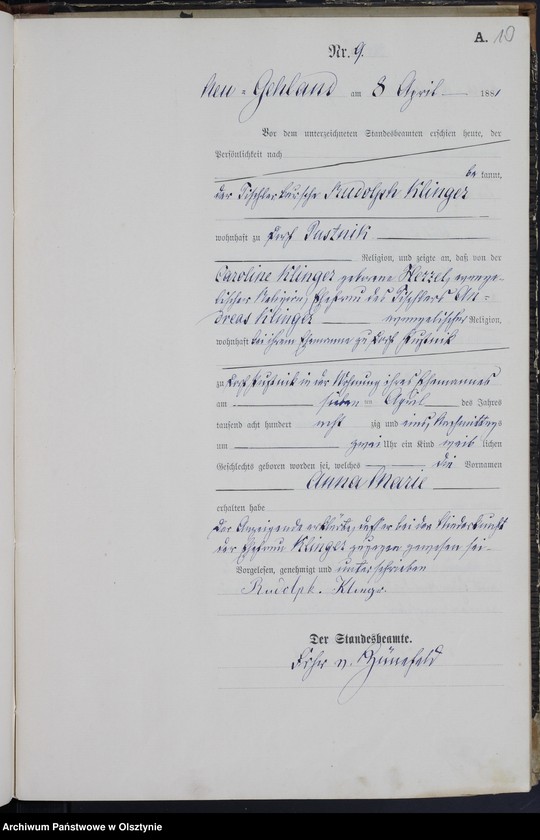 A. 10
Nr. 9.
Neu-Gehland am 8 April 1881
Vor dem unterzeichneten Standesbeamten erschien heute, der
Persönlichkeit nach
be kannt,
der Tischlerbursche Rudolph Klinger
wohnhaft zu Dorf Pustnik
Religion, und zeigte an, daß von der
Caroline Klinger geborene Herzel, evange-
lischer Religion, Ehefrau des Tischlers An-
dreas Klinger evangelischer Religion,
wohnhaft bei ihrem Ehemanne zu Dorf Pustnik
zu Dorf Pustnik in der Wohnung ihres Ehemannes
am sieben ten April des Jahres
tausend acht hundert acht zig und eins, Nachmittags
um zwei Uhr ein Kind weib lichen
Geschlechts geboren worden sei, welches die Vornamen
Anna Marie
erhalten habe
Der Anzeigende erklärte, daß er bei der Niederkunft
der Ehefrau Klinger zugegen gewesen sei-
Vorgelesen, genehmigt und unterschrieben
Rudolph. Klinge
Der Standesbeamte.
Frhr v. Hünefeld
Archiwum Państwowe w Olsztynie